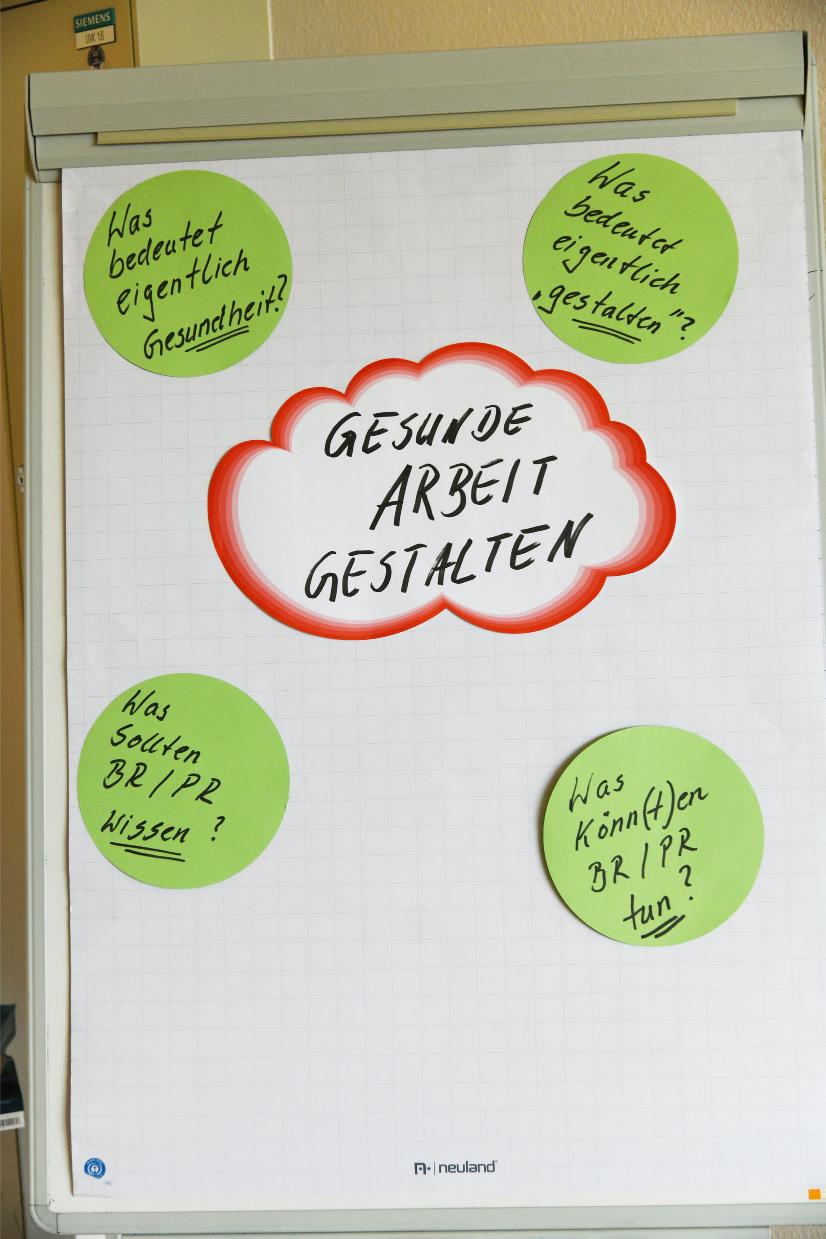 SIEMENS
Was
bedeutet
eigentlich
Gesundheit?
Was
bedeutet
eigentlich
„gestalten"?
GESUNDE
ARBEIT
GESTALTEN
Was
sollten
BR/PR
wissen?
Was
könn(t)en
BR/PR
tun?
neuland